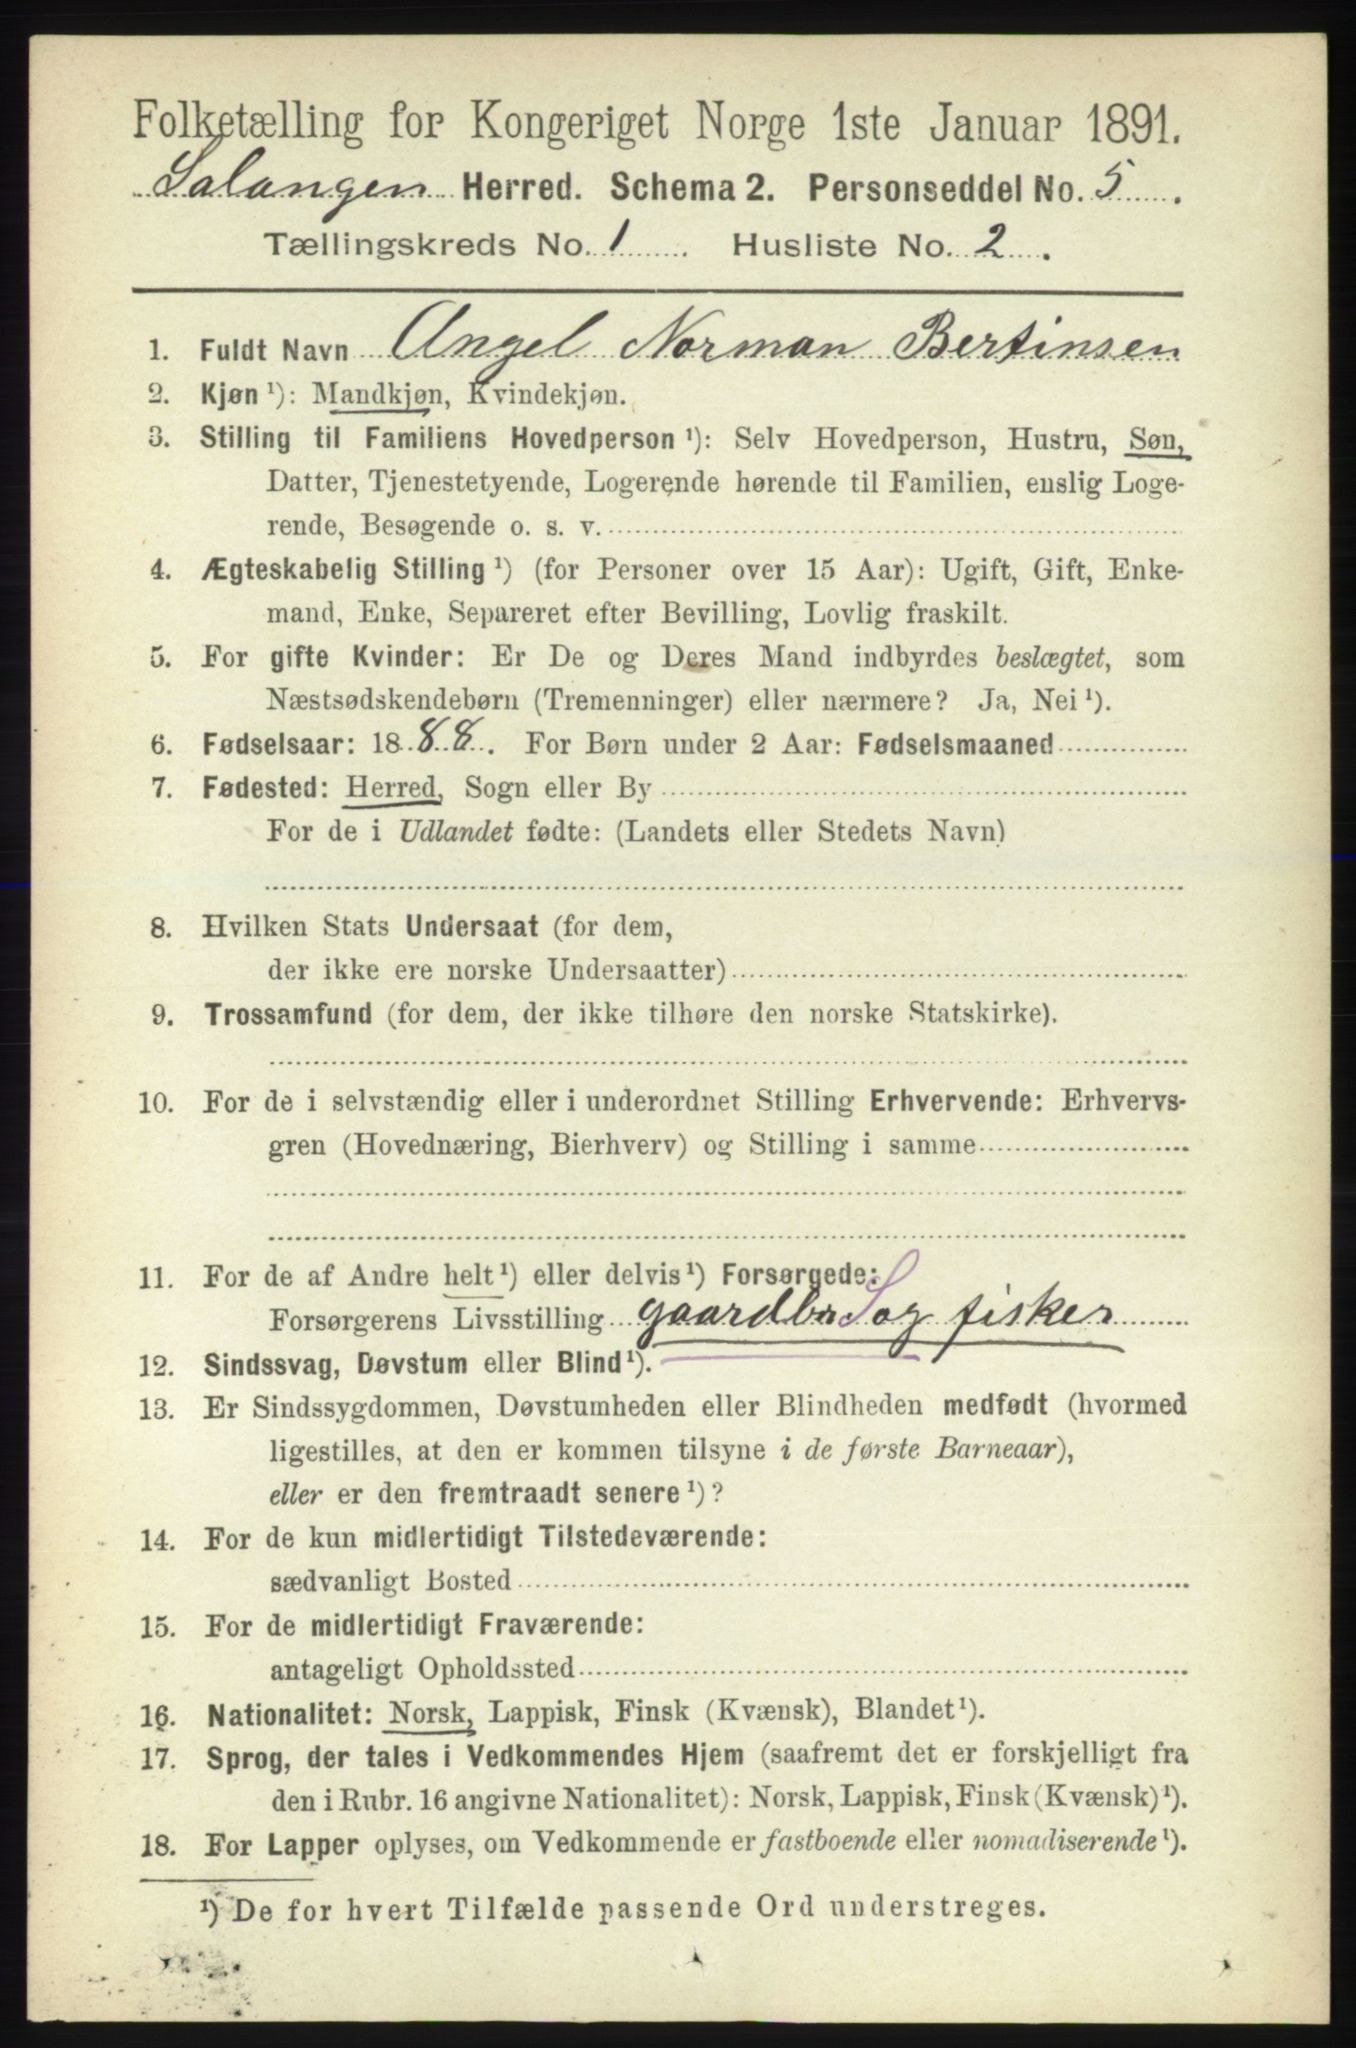 Folketælling for Kongeriget Norge 1ste Januar 1891.
Salangen Herred. Schema 2. Personseddel No. 5.
Tællingskreds No. 1. Husliste No. 2.
1. Fuldt Navn Angel Norman Bertinsen
2. Kjøn ¹): Mandkjøn, Kvindekjøn.
3. Stilling til Familiens Hovedperson ¹): Selv Hovedperson, Hustru, Søn,
Datter, Tjenestetyende, Logerende hørende til Familien, enslig Loge-
rende, Besøgende o. s. v.
4. Ægteskabelig Stilling ¹) (for Personer over 15 Aar): Ugift, Gift, Enke-
mand, Enke, Separeret efter Bevilling, Lovlig fraskilt.
5. For gifte Kvinder: Er De og Deres Mand indbyrdes beslægtet, som
Næstsødskendebørn (Tremenninger) eller nærmere? Ja, Nei ¹).
6. Fødselsaar: 1888. For Børn under 2 Aar: Fødselsmaaned
7. Fødested: Herred, Sogn eller By
For de i Udlandet fødte: (Landets eller Stedets Navn)
8. Hvilken Stats Undersaat (for dem,
der ikke ere norske Undersaatter)
9. Trossamfund (for dem, der ikke tilhøre den norske Statskirke).
10. For de i selvstændig eller i underordnet Stilling Erhvervende: Erhvervs-
gren (Hovednæring, Bierhverv) og Stilling i samme
11. For de af Andre helt ¹) eller delvis ¹) Forsørgede:
Forsørgerens Livsstilling gaardbr S og fisker
12. Sindssvag, Døvstum eller Blind ¹).
13. Er Sindssygdommen, Døvstumheden eller Blindheden medfødt (hvormed
ligestilles, at den er kommen tilsyne i de første Barneaar),
eller er den fremtraadt senere ¹)?
14. For de kun midlertidigt Tilstedeværende:
sædvanligt Bosted
15. For de midlertidigt Fraværende:
antageligt Opholdssted
16. Nationalitet: Norsk, Lappisk, Finsk (Kvænsk), Blandet ¹).
17. Sprog, der tales i Vedkommendes Hjem (saafremt det er forskjelligt fra
den i Rubr. 16 angivne Nationalitet): Norsk, Lappisk, Finsk (Kvænsk) ¹).
18. For Lapper oplyses, om Vedkommende er fastboende eller nomadiserende ¹).
¹) De for hvert Tilfælde passende Ord understreges.